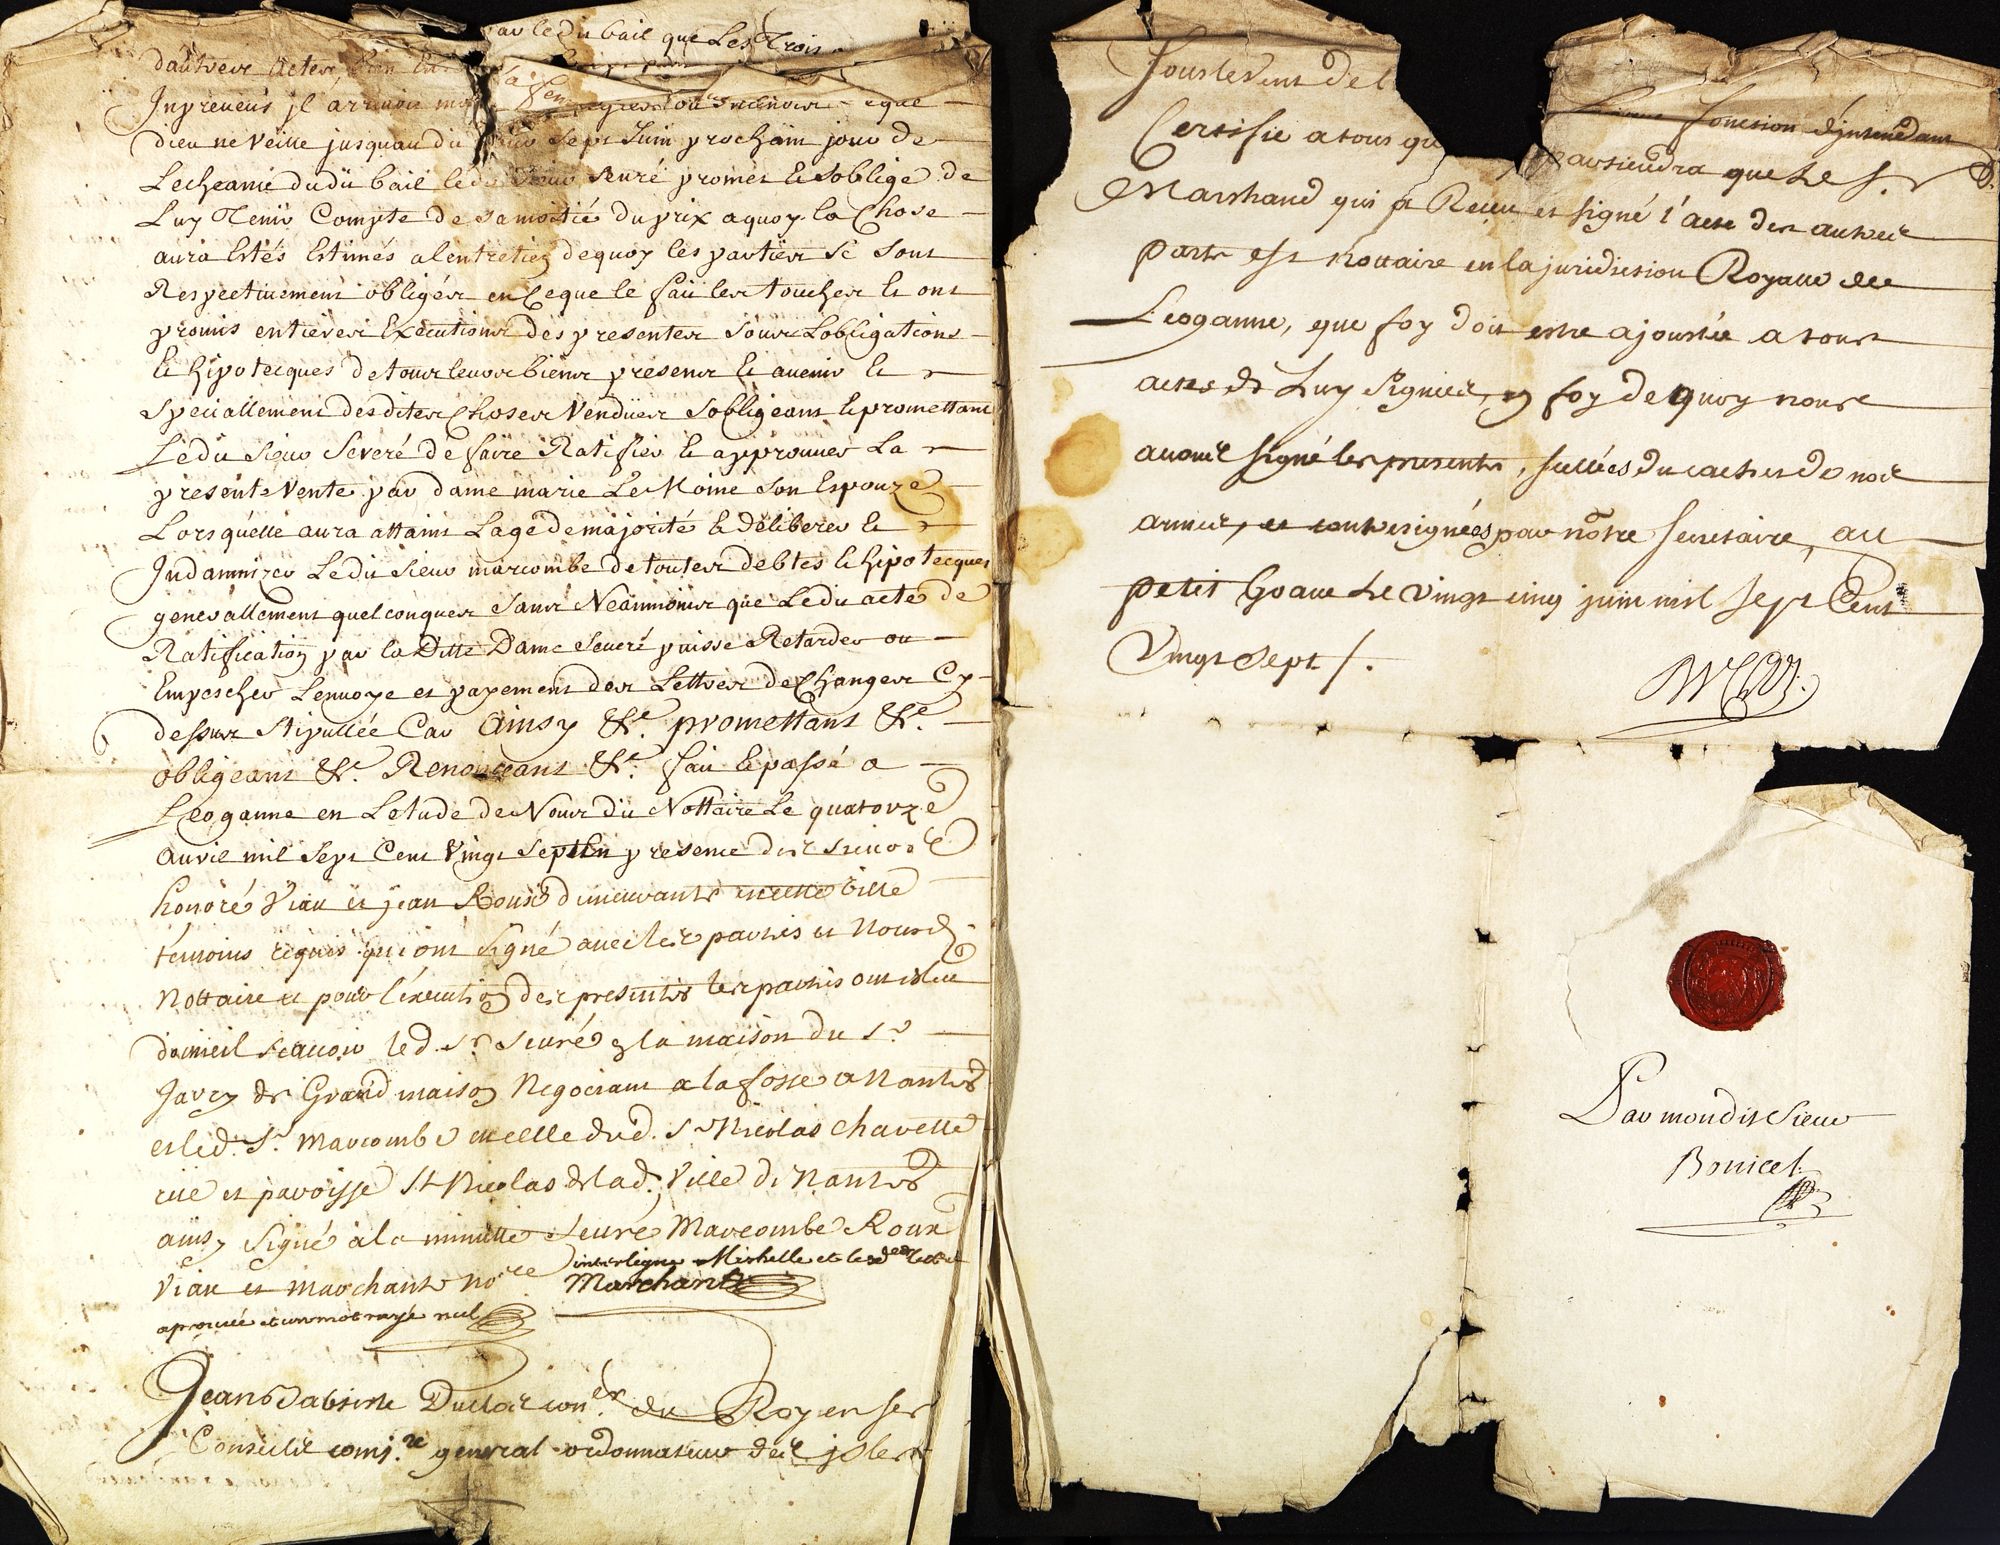 par ledit bail que les trois
d'autres actes
Inpreveus jl arrivoit
dieu ne veille jusquau dit sept Juin prochain jour de
Lecheance dudit bail ledit Sieur Seuré promet et Soblige de
Luy Tenir Compte de sa moitié du prix a quoy la Chose
aura Estés Estimés a lentretien de quoy les parties se sont
Respectivement obligés en Ce que le fait les touches et ont
promis entieres Executions des presentes sous Lobligations
et hipotecques de tous leurs biens presens et avenir et
Speciallement desdites Choses Vendües sobligeant et promettant
Ledit Sieur Severé de faire Ratifier et approuver La
presente Vente par dame marie Le Moine son Espouze
Lorsquelle aura attaint Lage de majorité et deliberer et
Indamnizer Ledit Sieur marcombe de toutes debtes et hipotecques
generallement quelconques sans Neanmoins que Ledit acte de
Ratification par la Ditte Dame Severé puisse Retarder ou
Empescher Lenvoye et payement des Lettres de Changes Cy
dessus Stipullée Car Ainsy &c. promettant &c.
obligeant &c. Renonceant &c. fait et passé a
Leoganne en Letude de Nous dit Nottaire Le quatorze
avril mil Sept Cent Vingt Sept En presence des Sieurs
honoré Viau et jean Roux demeurants en cette ville
temoins requis qui ont signé avec les parties et Nous d.
Nottaire et pour l'execution des presentes les parties ont eslue
domicil scavoir led. Sr. Seuré en la maison du Sr.
Javry de Grand maison Negociant a la fosse a Nantes
et led. Sr. Marcombe en celle dud. Sr Nicolas Chavette
rüe et paroisse St Nicolas de lad. Ville de Nantes
ainsy Signé à la minutte Seuré Marcombe Roux
Viau et Marchant nore interligne Michelle et
Marchant
aprouvé et un mot rayé nul
Jean Duclos coner. du Roy en ses
Conseils comre. general ordonnateur des jsles
sous le vent de l
fonction d'jntendant
Certifie a tous qu appartiendra que Le Sr.
Marchand qui a Receu et signé l'acte des autres
parts est nottaire en la juridiction Royalle de
Leoganne, que foy doit estre ajoustée a tous
actes de Luy signés, en foy de quoy nous
avons signé les presentes, scellées du cachet de nos
armes, et contresignées par nôtre secretaire, au
petit Goave Le vingt cinq juin mil sept Cent
Vingt Sept /.
Par mondit Sieur
Bonicel